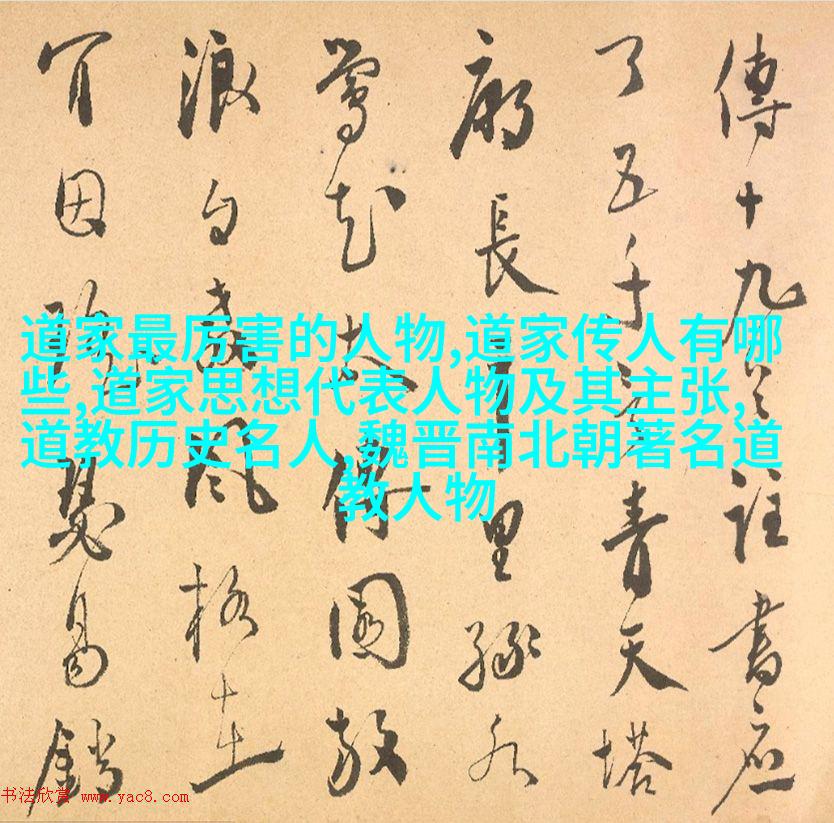 道家最厉害的人物,道家传人有哪
些,道家思想代表人物及其主张,
道教历史名人,魏晋南北朝著名道
教人物
傳十九註書应
了五千青天塔
長里緣水
園
浪白風格在
因易銷
书法欣赏 www.yac8.com